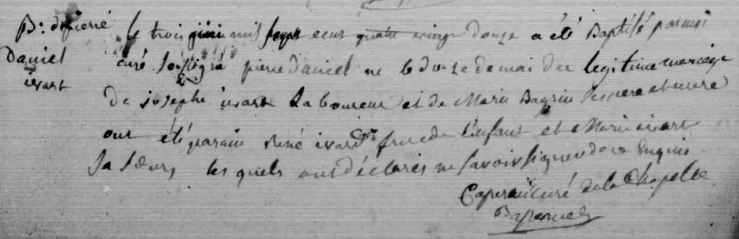 B. de pierre Daniel ivart
le trois juin mil sept cent quatre vingt douze a été Baptisé par moi
curé soussigné pierre daniel né le douze de mai du legitime mariage
de josephe ivart Laboureur et de Marie ses pere et mere
ont été parain René ivard frere de l'enfant et Marie ivart
Sa Soeur, les quels ont déclarés ne savoir signer de ce enquis
curé de la Chapelle